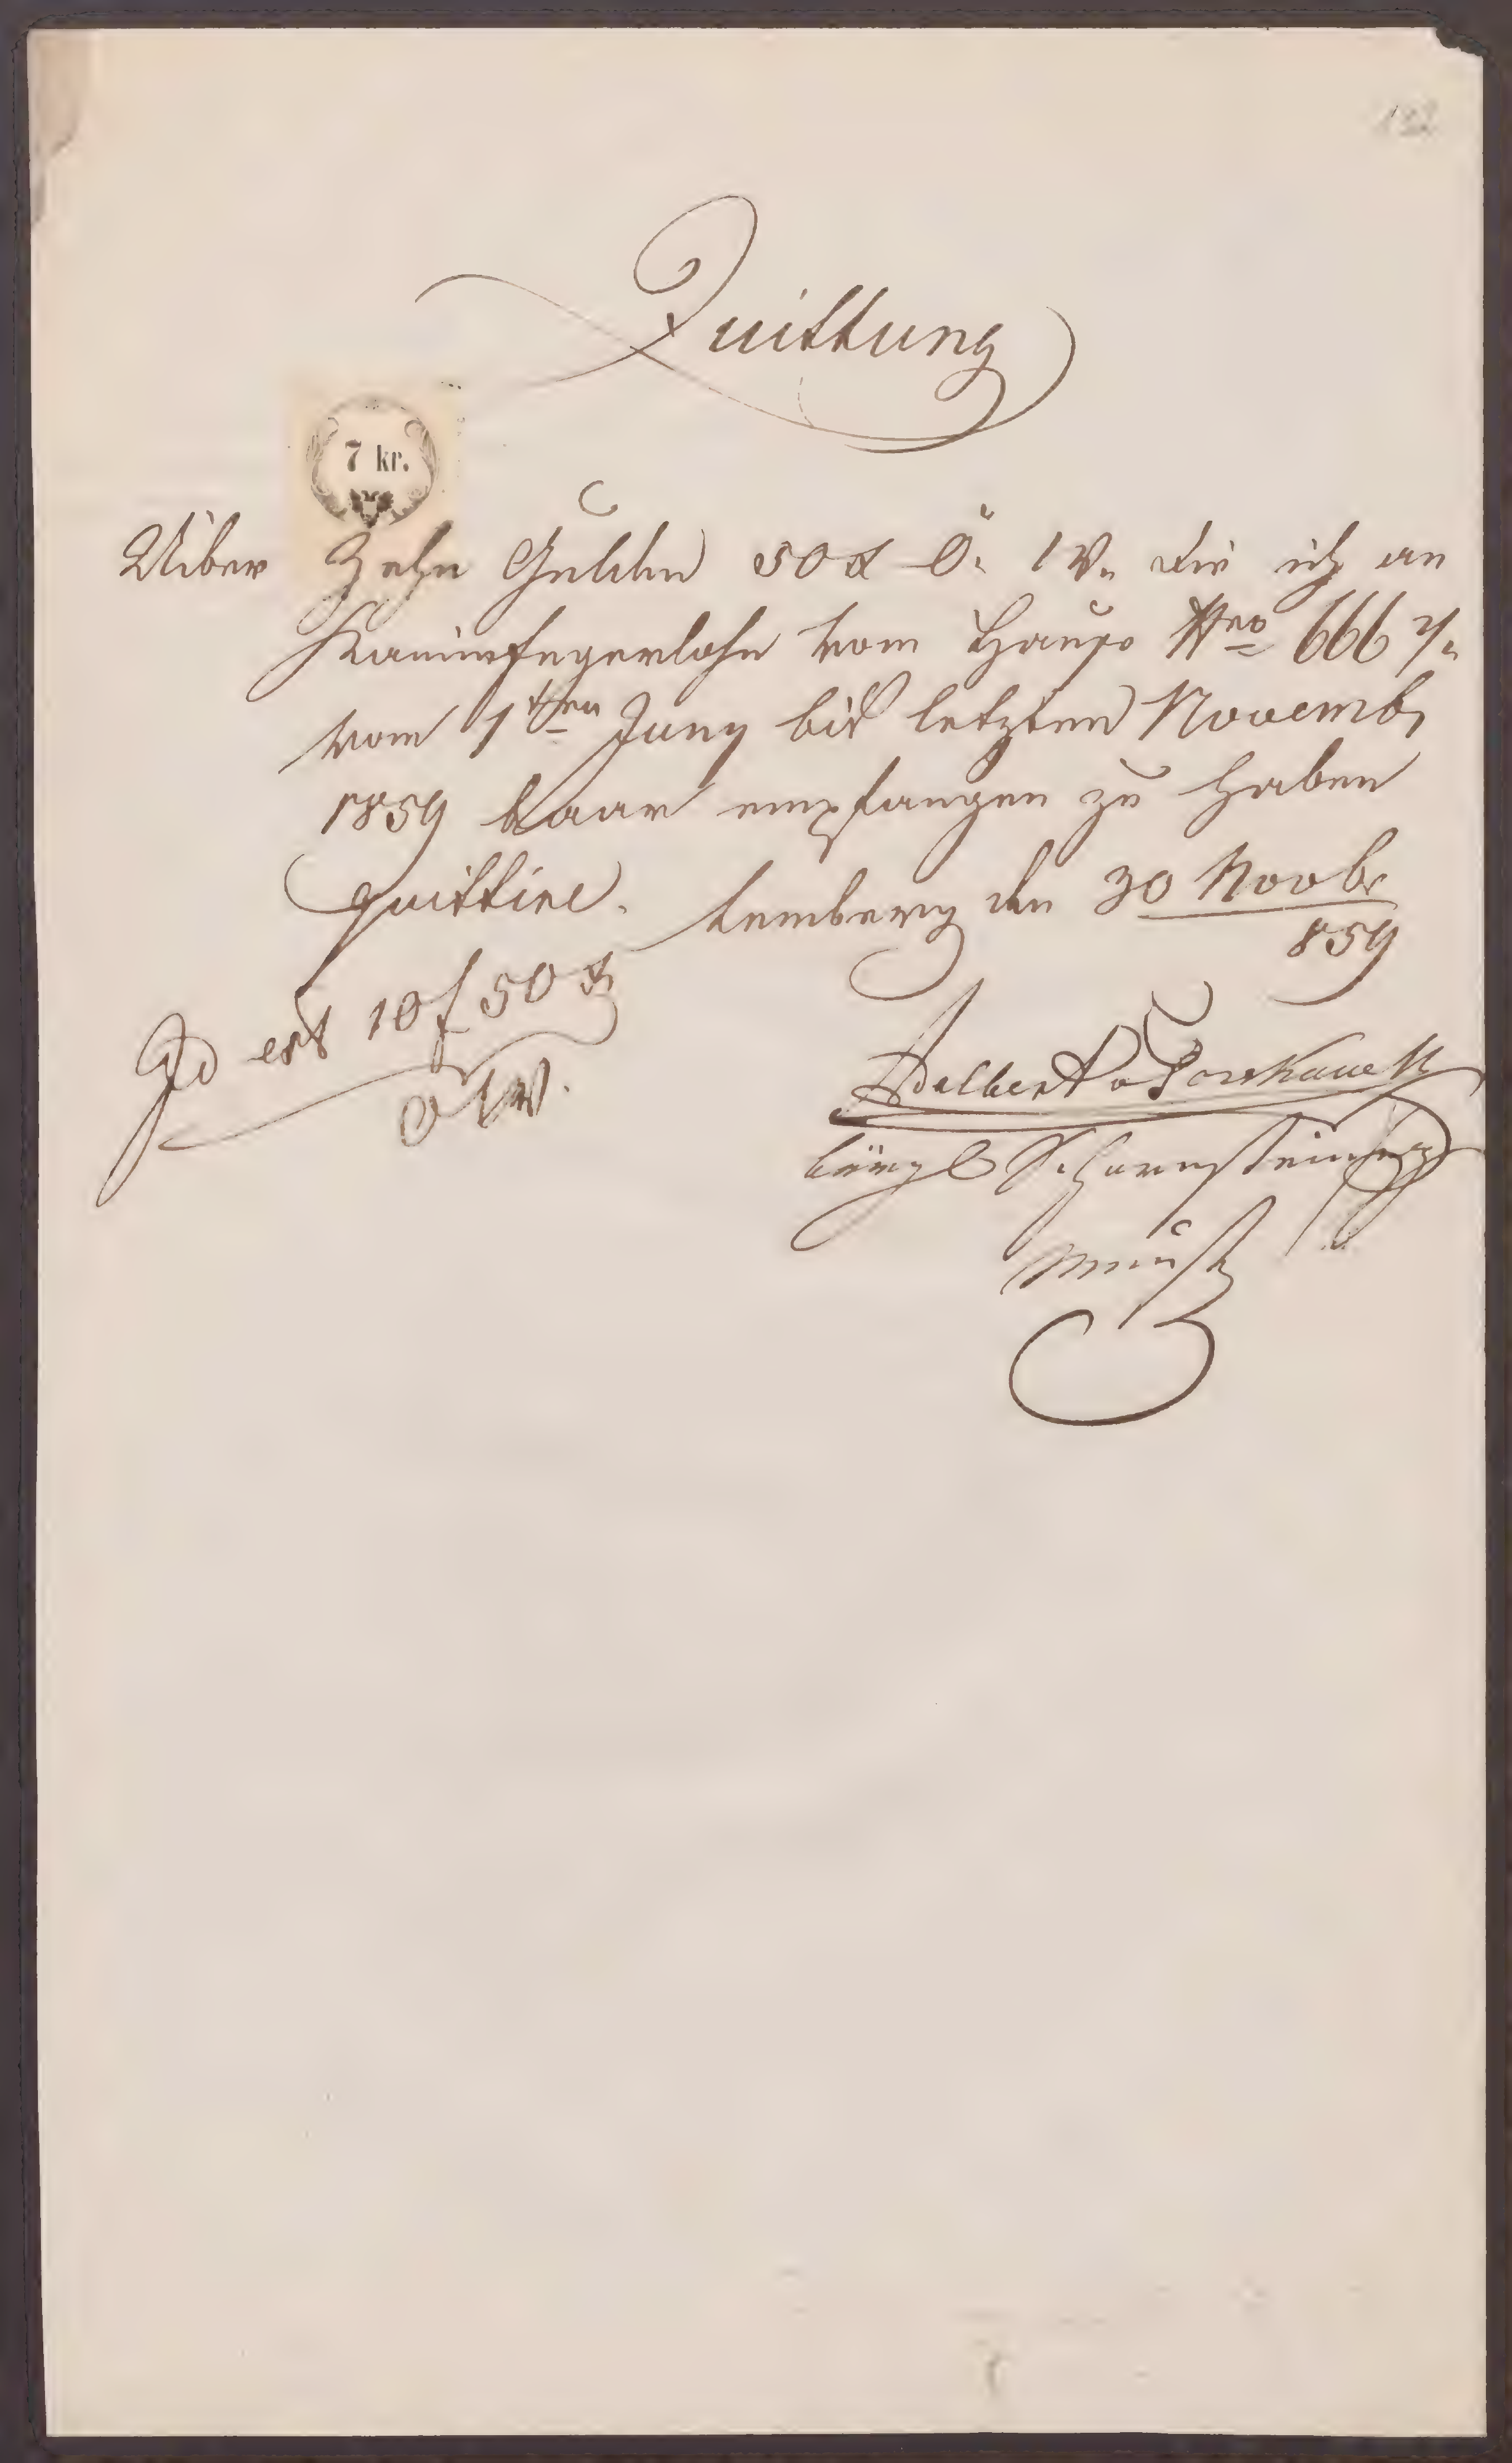 132
Quittung
7 kr.
Uiber Zehn Gulden 50 x Ö. W. die ich an
Kaminfegerlohn vom Hause Nro 666
vom 1ten Juny bis letzten Novemb
1859 baar empfangen zu haben
quittire. Lemberg den 30 Novbr
859
Id est 10 f 50 x
Ö W.
Adalbert
bürgl Schornsteinfeger